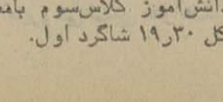 دانش‌آموز کلاس سوم بامعدل
کل ۱۹ر۳۰ شاگرد اول.